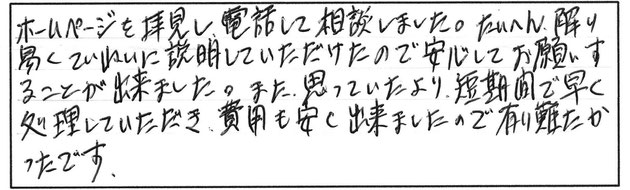 ホームページを拝見し、電話して相談しました。たいへん、解り
易くていねいに説明していただけたので安心してお願いす
ることが出来ました。また、思っていたより、短期間で早く
処理していただき、費用も安く出来ましたので有り難たか
ったです。